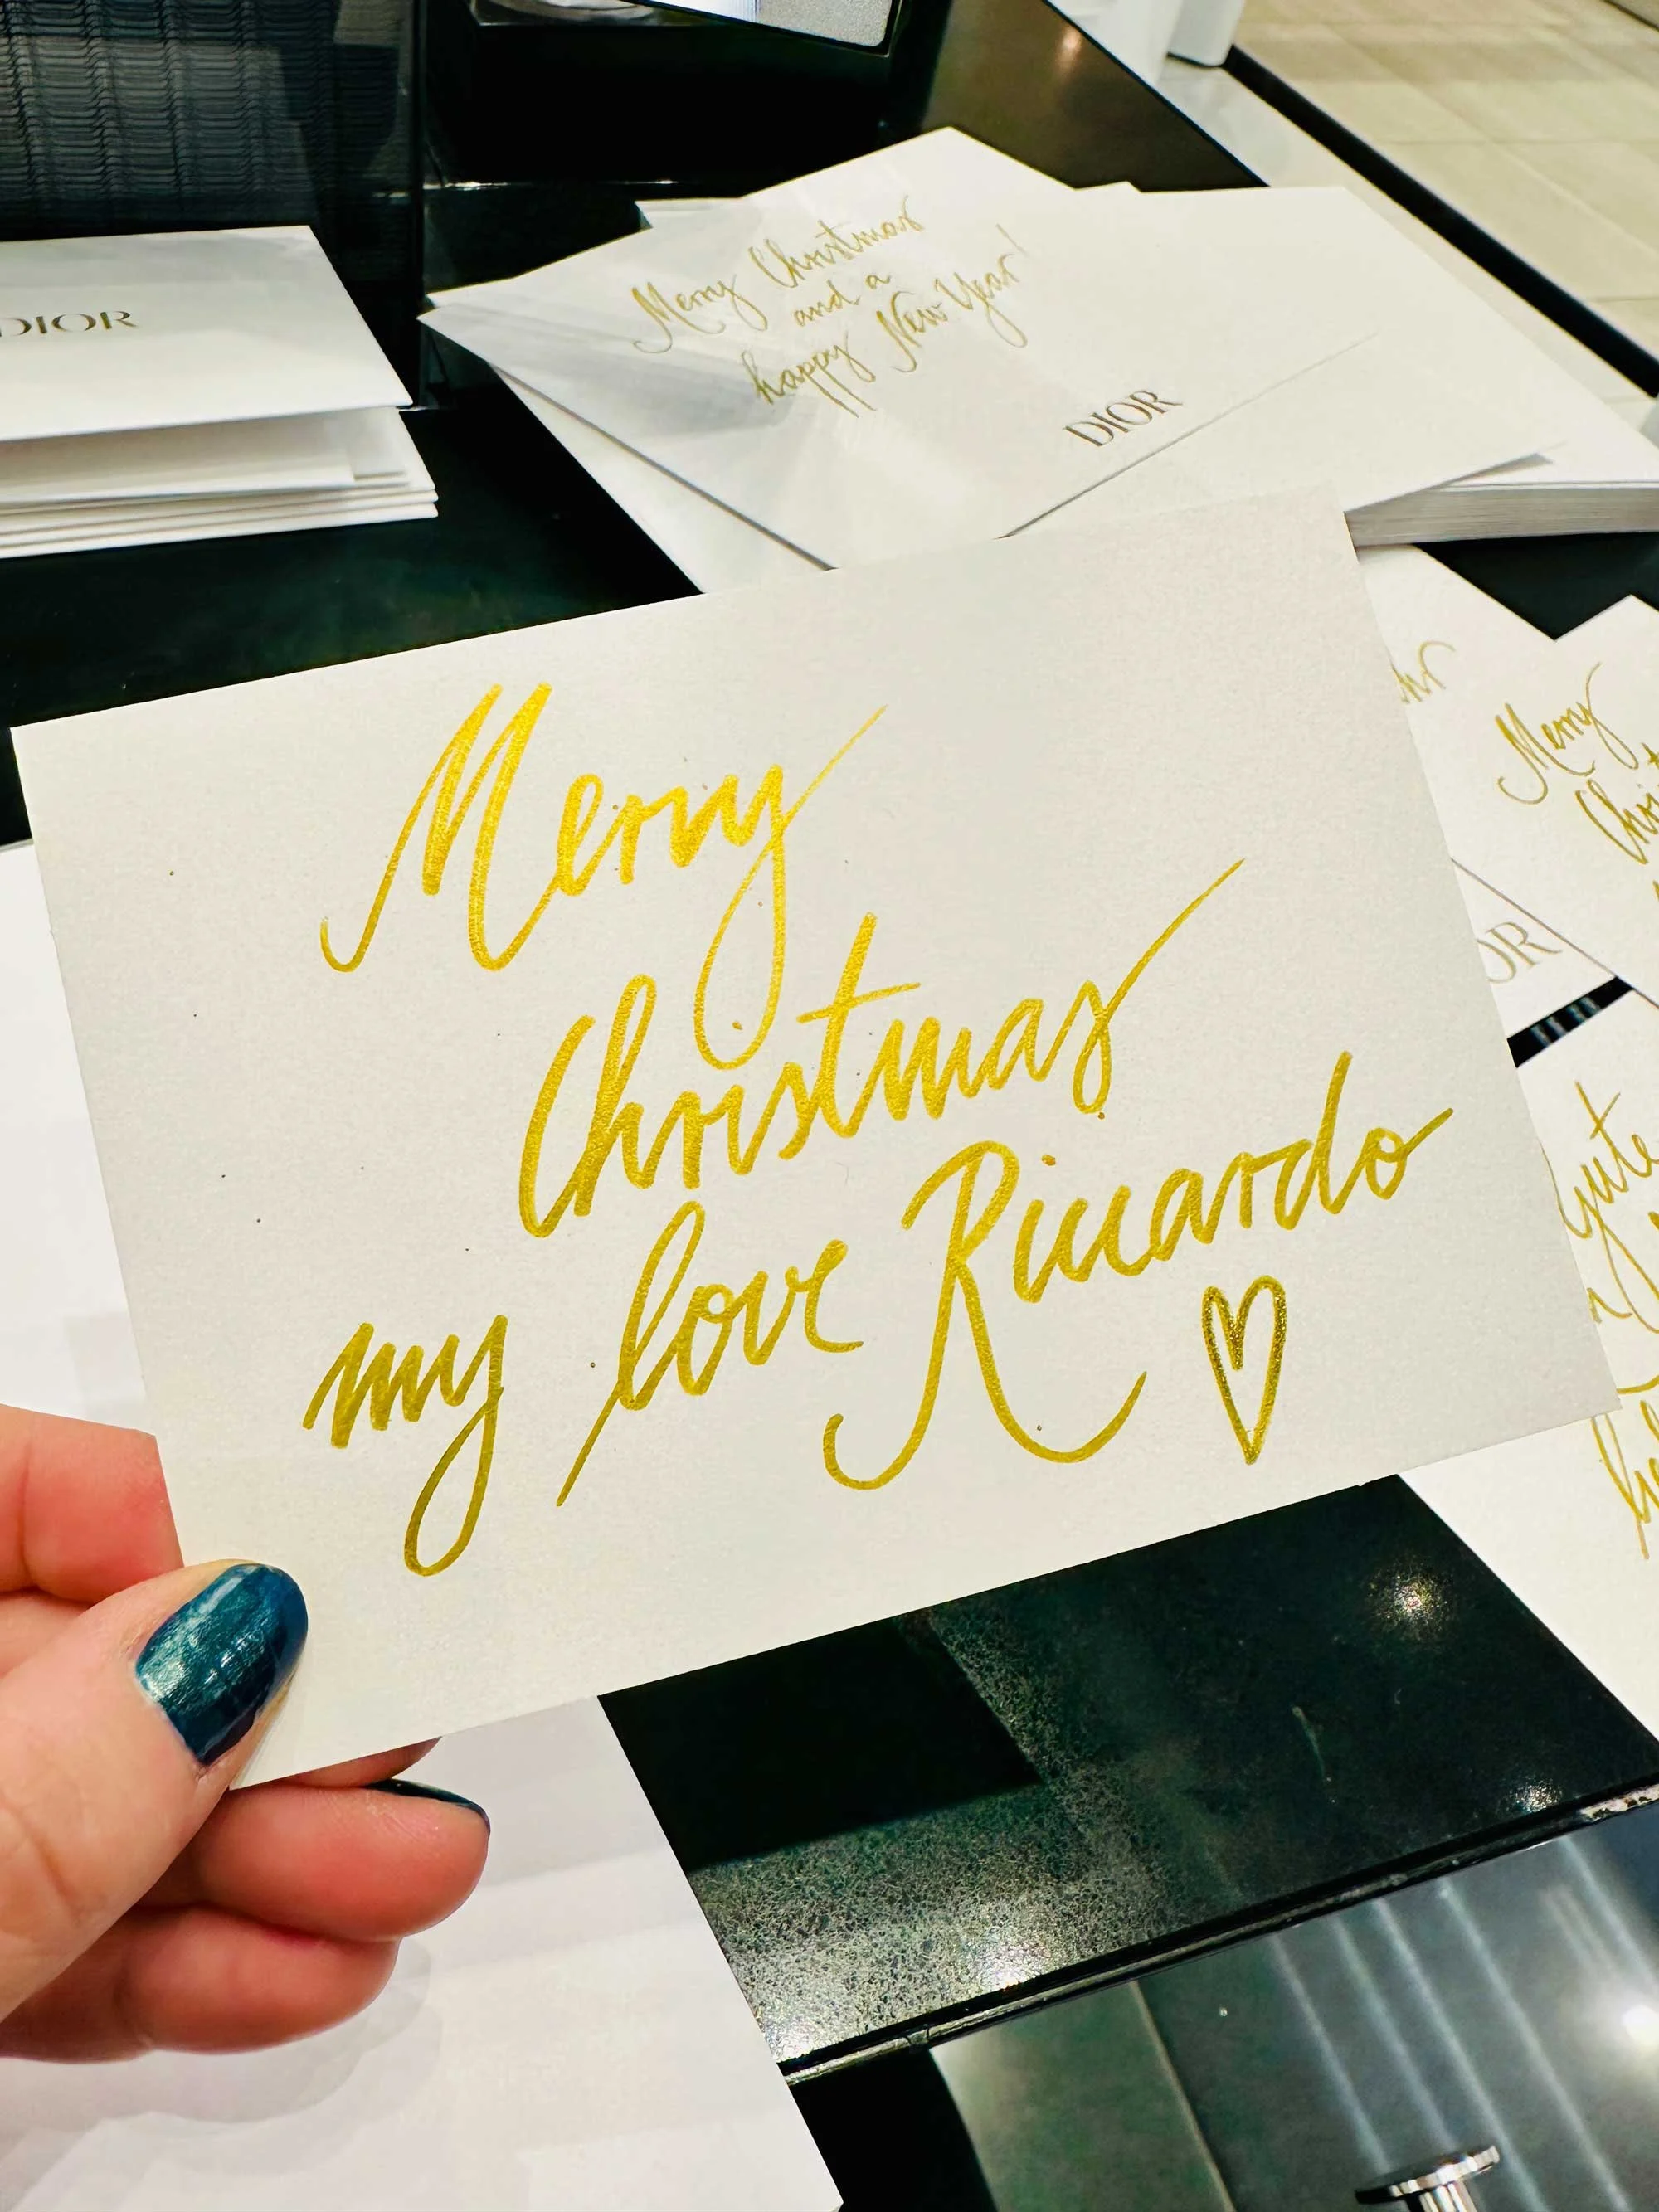 DIOR
Merry Christmas
and a
happy New Year!
DIOR
Merry
Christmas
my love Riccardo
Merry
gute